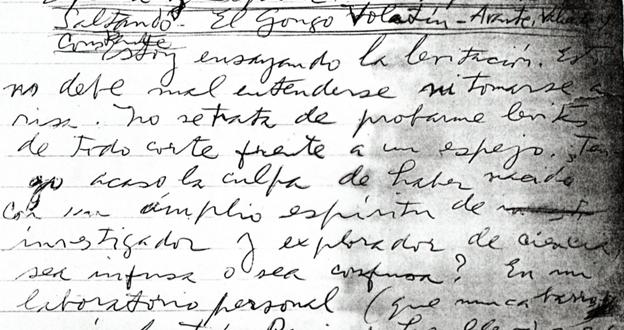 Saltando. El Gongo Volatín - Avante, Valiente,
Constante
Estoy ensayando la levitación. Esto
no debe mal entenderse ni tomarse a
risa. No se trata de probarme levites
de todo corte frente a un espejo. ¿Ten
go acaso la culpa de haber nacido
con un amplio espíritu de
investigador y explorador de ciencia
sea infusa o sea confusa? En mi
laboratorio personal (que nunca barro